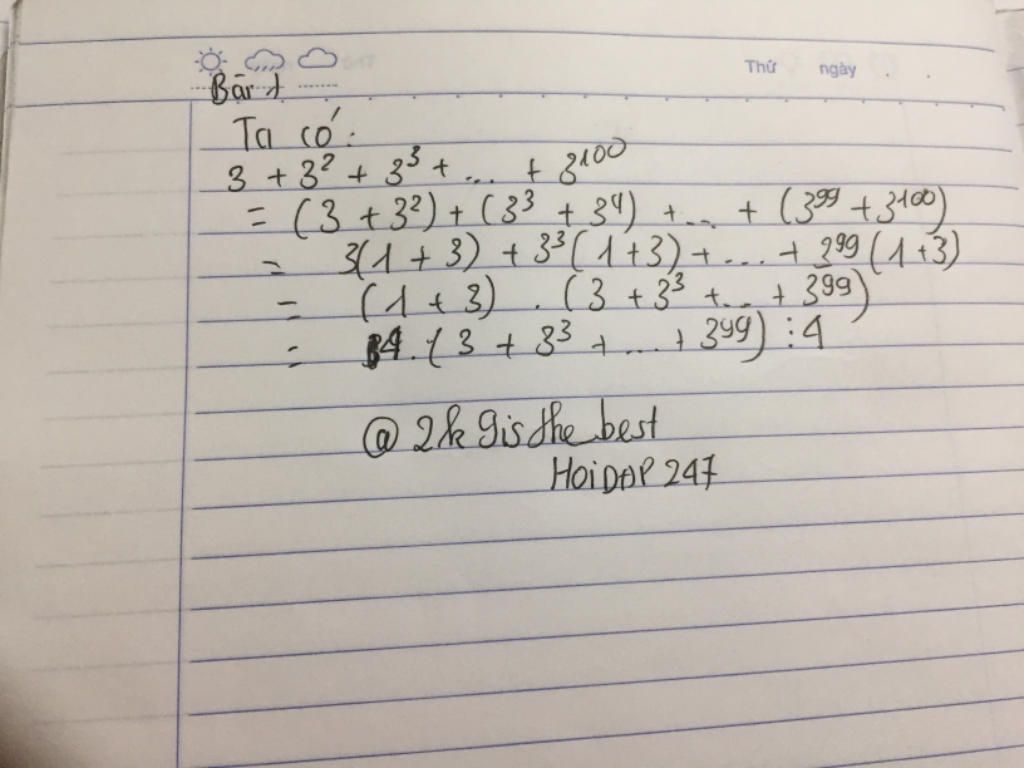 Thứ ngày
Bài 1
Ta có:
3 + 3² + 3³ + ... + 3¹⁰⁰
= (3 + 3²) + (3³ + 3⁴) + ... + (3⁹⁹ + 3¹⁰⁰)
= 3(1 + 3) + 3³(1+3) + ... + 3⁹⁹(1+3)
= (1 + 3) . (3 + 3³ + ... + 3⁹⁹)
= 4 . (3 + 3³ + ... + 3⁹⁹) ⋮ 4
@ 2k9isthebest
HOIDAP 247